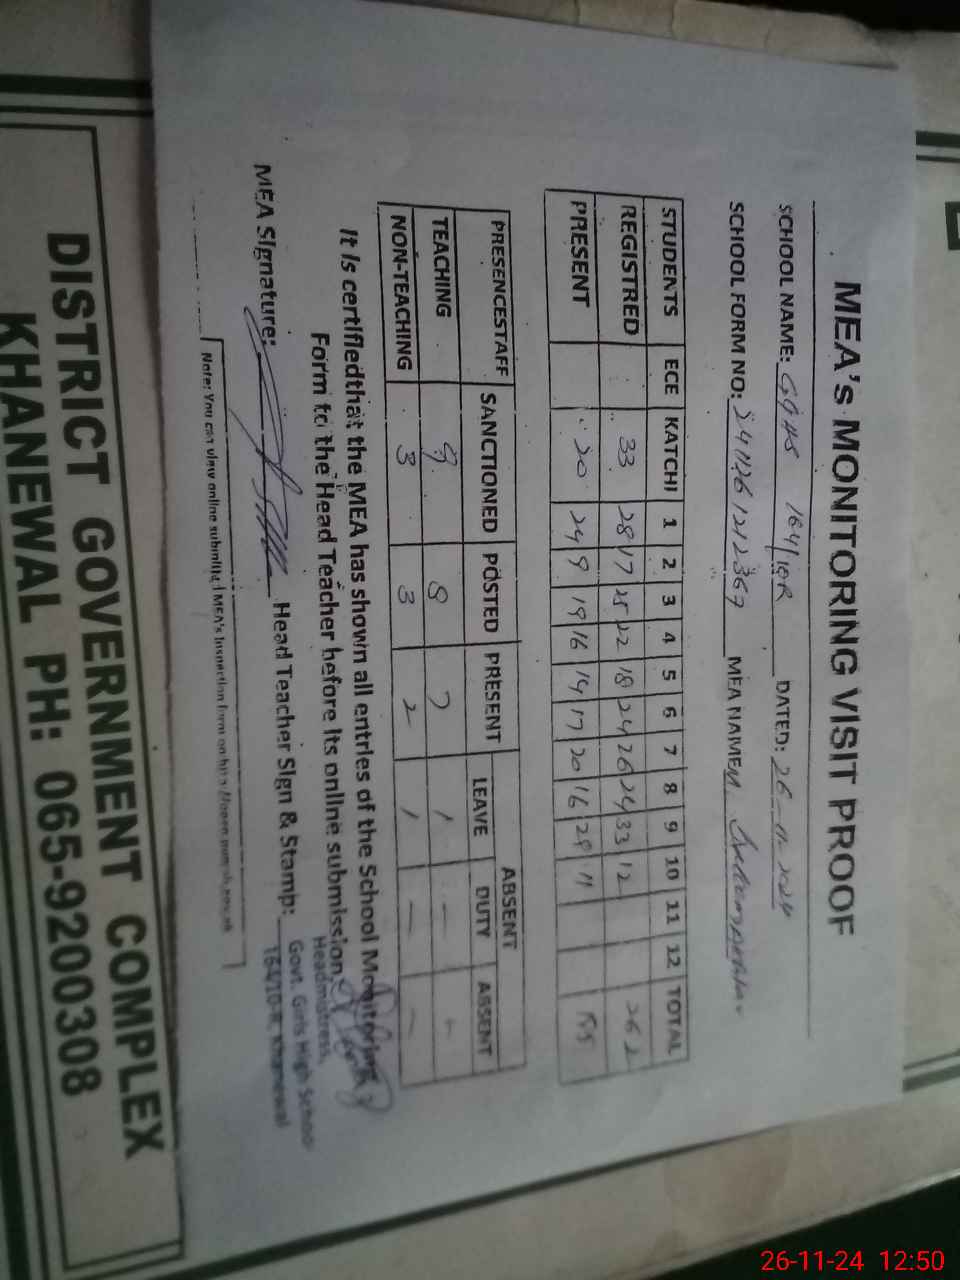 MEA's MONITORING VISIT PROOF
SCHOOL NAME: GGHS 164/10R DATED: 26-11-2024
SCHOOL FORM NO: 2411261212367 MEA NAME
STUDENTS ECE KATCHI 1 2 3 4 5 6 7 8 9 10 11 12 TOTAL
REGISTRED 33 28 17 25 22 18 24 26 24 33 12 262
PRESENT 20 24 9 19 16 14 17 20 16 29 11
PRESENCESTAFF SANCTIONED POSTED PRESENT ABSENT
LEAVE DUTY ABSENT
TEACHING 9 8 7 1 - -
NON-TEACHING 3 3 2 1 - -
It is certifiedthat the MEA has shown all entries of the School Monitoring
Form to the Head Teacher before its online submission.
MEA Signature: Head Teacher Sign & Stamp:
Headmistress,
Govt. Girls High School
164/10-R, Khanewal
Note: You can view online submitted MEA's Inspection form on
DISTRICT GOVERNMENT COMPLEX
KHANEWAL PH: 065-9200308
26-11-24 12:50